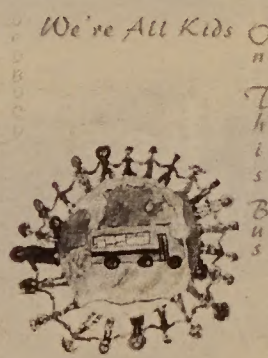 We're All Kids
On
This
Bus